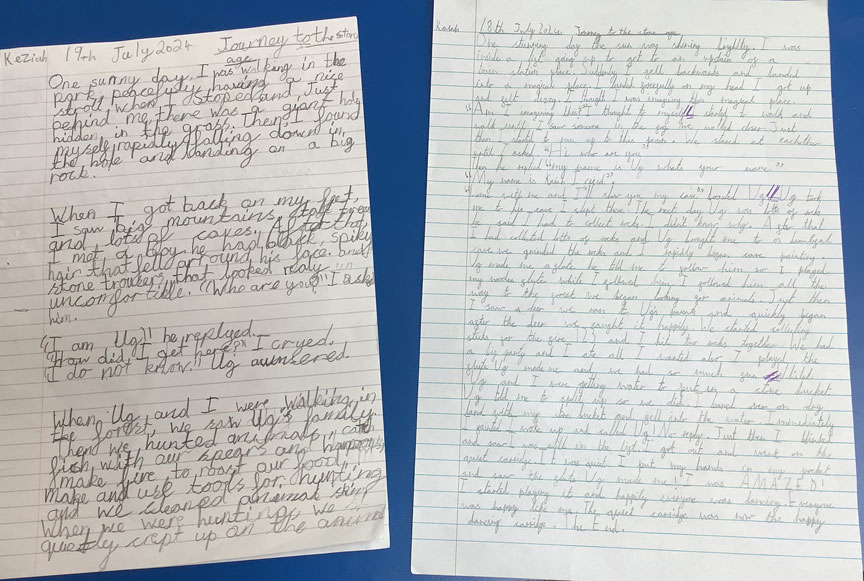 Keziah 19th July 2024 Journey to the stone
age
One sunny day, I was walking in the
park peacefully, having a nice
stroll, when I stoped and just
behind me, there was a giant hole
hidden in the grass. Then, I found
myself rapidly falling down in
the hole and landing on a big
rock.
When I got back on my feet,
I saw big mountains, tall trees
and lots of caves. After that,
I met a boy, he had black, spiky
hair that fell arround his face and
stone trousers that looked realy
uncomfortable. "Who are you?" I asked
him.
"I am Ug!" he replyed.
"How did I get here?" I cryed.
"I do not know." Ug aunsered.
When Ug and I were walking in
the forest, we saw Ug's family
then we hunted animals, catch
fish with our spears and
make fire to roast our food
make and use tools for hunting
and we cleaned animal skin
When we were hunting, we
quietly crept up on the animal
18th July 2024 Journey to the stone age
One stunning day the sun was shining brightly. I was
inside a lift going up to get to an upstairs of a
train station place. Suddenly I fell backwards and landed
into a magical place. I landed forcefully on my head. I got up
and felt dizzy. I thought I was imagining this magical place.
"Am I imagining this" I thought to myself. I started to walk and
walk until I saw someone in the fog. We walked closer. Just
then I started to run up to this person. We stared at eachother
until I asked "Hi who are you"
Then he replied "my name is Ug whats your name."
"My name is I cryed!"
"Come with me and I'll show you my cave" Ug. Ug took
me to his cave. I slept there. The next day Ug was lots of rocks
he said I had to collect rocks. I didn't know why. After that
I had collected lots of rocks and Ug brought me to a beautiful
cave we grinded the rocks and I rapidly began cave painting.
Ug made me a flute he told me to follow him so I played
my wooden flute while I followed him. I followed him all the
way to the forest we began looking for animals. Just then
I saw a deer we ran to Ug's parents and quickly began
after the deer we caught it happily. We started collecting
sticks for the fire, and I hit two rocks together. We had
a party and I ate all I wanted also I played the
flute Ug made me and we had so much fun
Ug and I were getting water to put in a stone bucket
Ug told me to split up so we did. I on dry
land with my stone bucket and fell into the water. Immediately
I I woke up and called Ug. No reply. Just then I blinked
and saw I was still in the lift. I got out and went on the
quiet carridge. It was quiet. I put my hands in my pocket
and saw the flute Ug made me! I was AMAZED!
I started playing it and happily everyone was dancing. Everyone
was happy like me. The quiet carridge was now the happy
dancing carridge. The End.